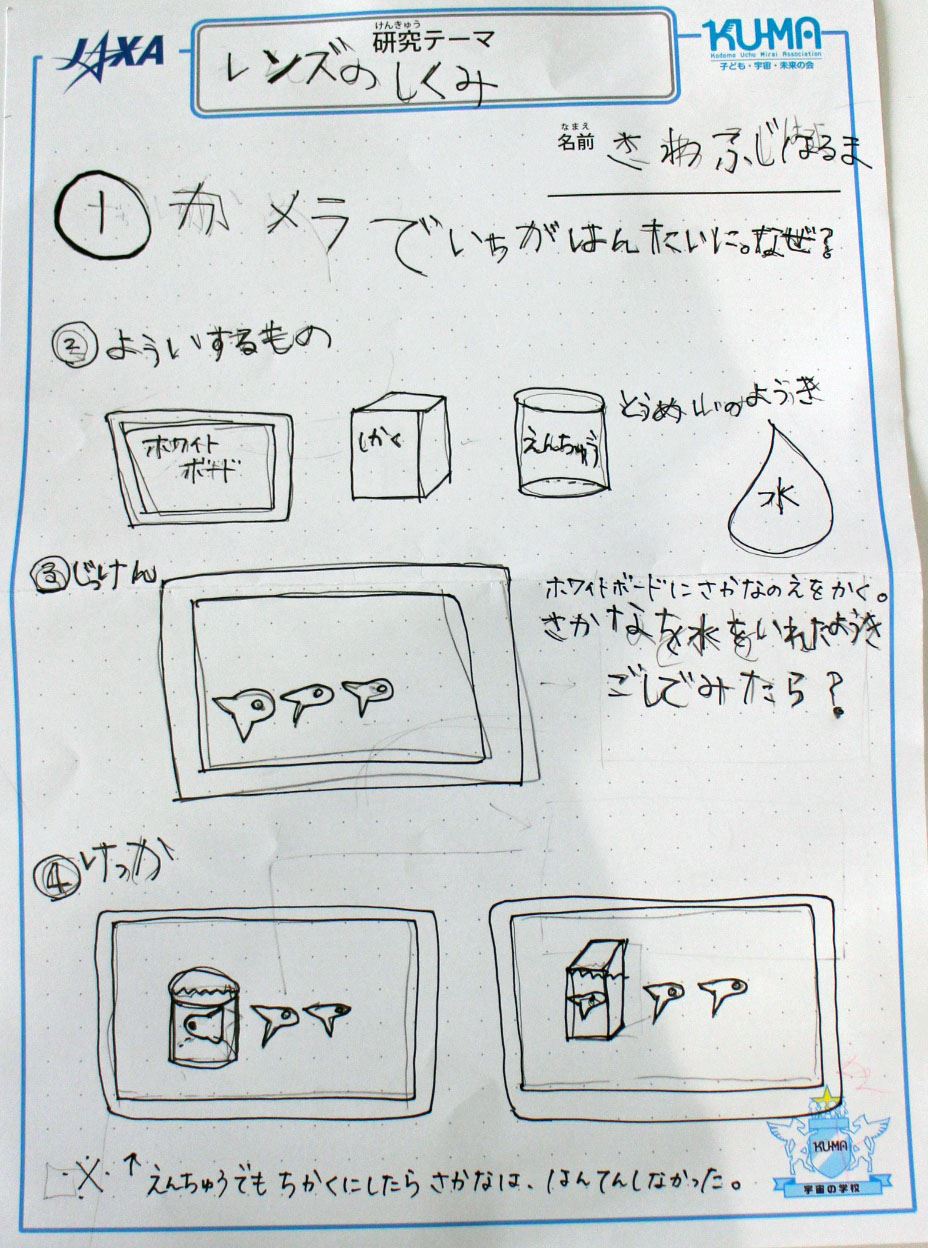 JAXA
けんきゅう
研究テーマ
レンズのしくみ
KU-MA
Kodomo Uchu Mirai Association
子ども・宇宙・未来の会
なまえ
名前 さわふじはるま
① カメラでいちがはんたいに。なぜ?
② よういするもの
ホワイト
ボード
しかく
えんちゅう
とうめいのようき
水
③ じっけん
ホワイトボードにさかなのえをかく。
さかなを水をいれたようき
ごしでみたら?
④ けっか
※ ↑ えんちゅうでもちかくにしたらさかなは、はんてんしなかった。
KU-MA
宇宙の学校